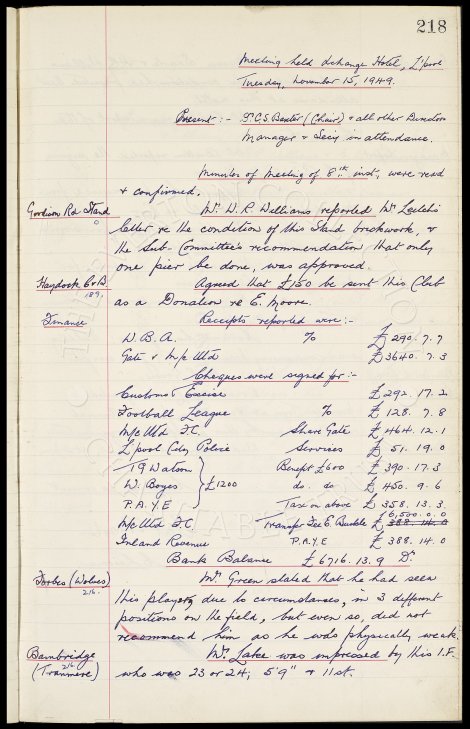 218
Meeting held Exchange Hotel, L'pool
Tuesday, November 15, 1949.
Present :- Dr. C.S. Baxter (Chair) & all other Directors
Manager & Secy in attendance.
Minutes of Meeting of 8th inst, were read
& confirmed.
Goodison Rd Stand Mr. W.R. Williams reported Mr. Leitch's
letter re the condition of this Stand brickwork, &
the Sub-Committee's recommendation that only
one pier be done, was approved.
Haydock C & B Agreed that £150 be sent this Club
189,
as a Donation re E. Moore.
Finance Receipts reported were :-
W.B.A. % £ 290. 7. 7
Gate v M/c Utd £3640. 7. 3
Cheques were signed for :-
Customs & Excise £292. 17. 2
Football League % £ 128. 7. 8
M/c Utd F.C. Share Gate £ 464. 12. 1
L'pool City Police Services £ 51. 19. 0
T G Watson Benefit £600 £ 390. 17. 3
W. Boyes £1200 do. do £ 450. 9. 6
P.A.Y.E Tax on above £ 358. 13. 3
M/c Utd F.C. Transfer Fee E. Buckle £ 6,500. 0. 0 388. 14. 0
Inland Revenue P.A.Y.E £ 388. 14. 0
Bank Balance £ 6716. 13. 9 Dr
Forbes (Wolves) Mr. Green stated that he had seen
216.
this player, due to circumstances, in 3 different
positions on the field, but even so, did not
recommend him as he was physically weak.
Bainbridge Mr. Lake was impressed by this I.F.
216
(Tranmere) who was 23 or 24, 5'9" & 11st.